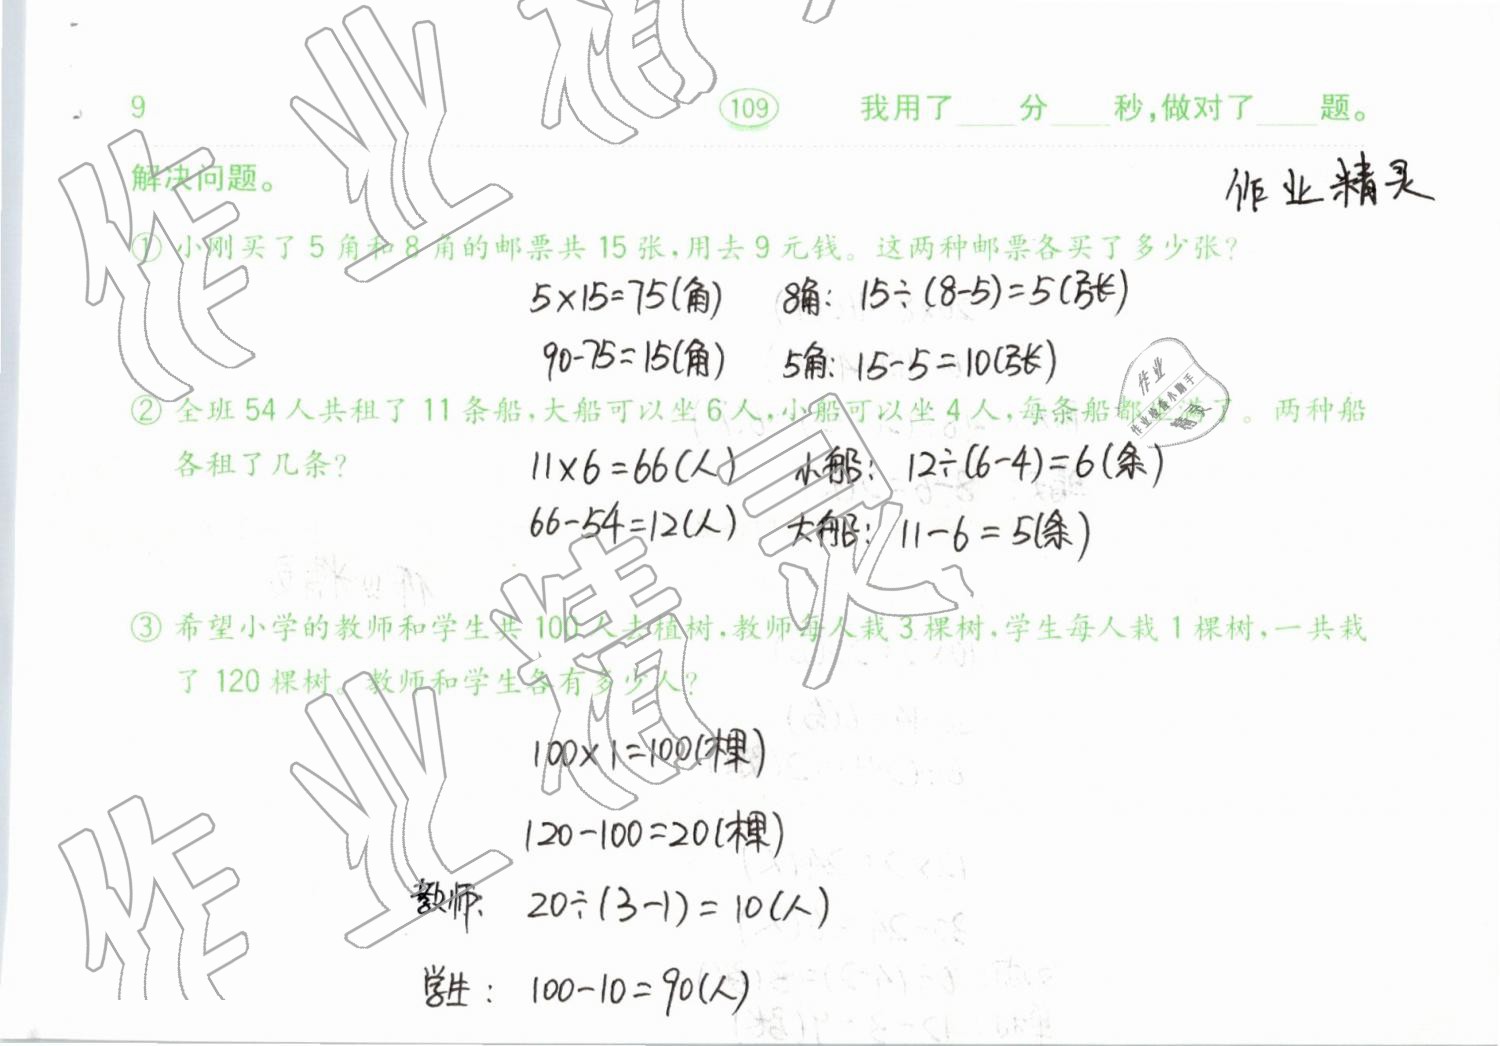 9 109 我用了____分____秒,做对了____题。
解决问题。
作业精灵
① 小刚买了5角和8角的邮票共15张,用去9元钱。这两种邮票各买了多少张?
5×15=75(角) 8角: 15÷(8-5)=5(张)
90-75=15(角) 5角: 15-5=10(张)
② 全班54人共租了11条船,大船可以坐6人,小船可以坐4人,每条船都坐满了。两种船
各租了几条?
11×6=66(人) 小船: 12÷(6-4)=6(条)
66-54=12(人) 大船: 11-6=5(条)
③ 希望小学的教师和学生共100人去植树,教师每人栽3棵树,学生每人栽1棵树,一共栽
了120棵树。教师和学生各有多少人?
100×1=100(棵)
120-100=20(棵)
教师: 20÷(3-1)=10(人)
学生: 100-10=90(人)
作业精灵
作业精灵
作业
作业检查小助手
精灵